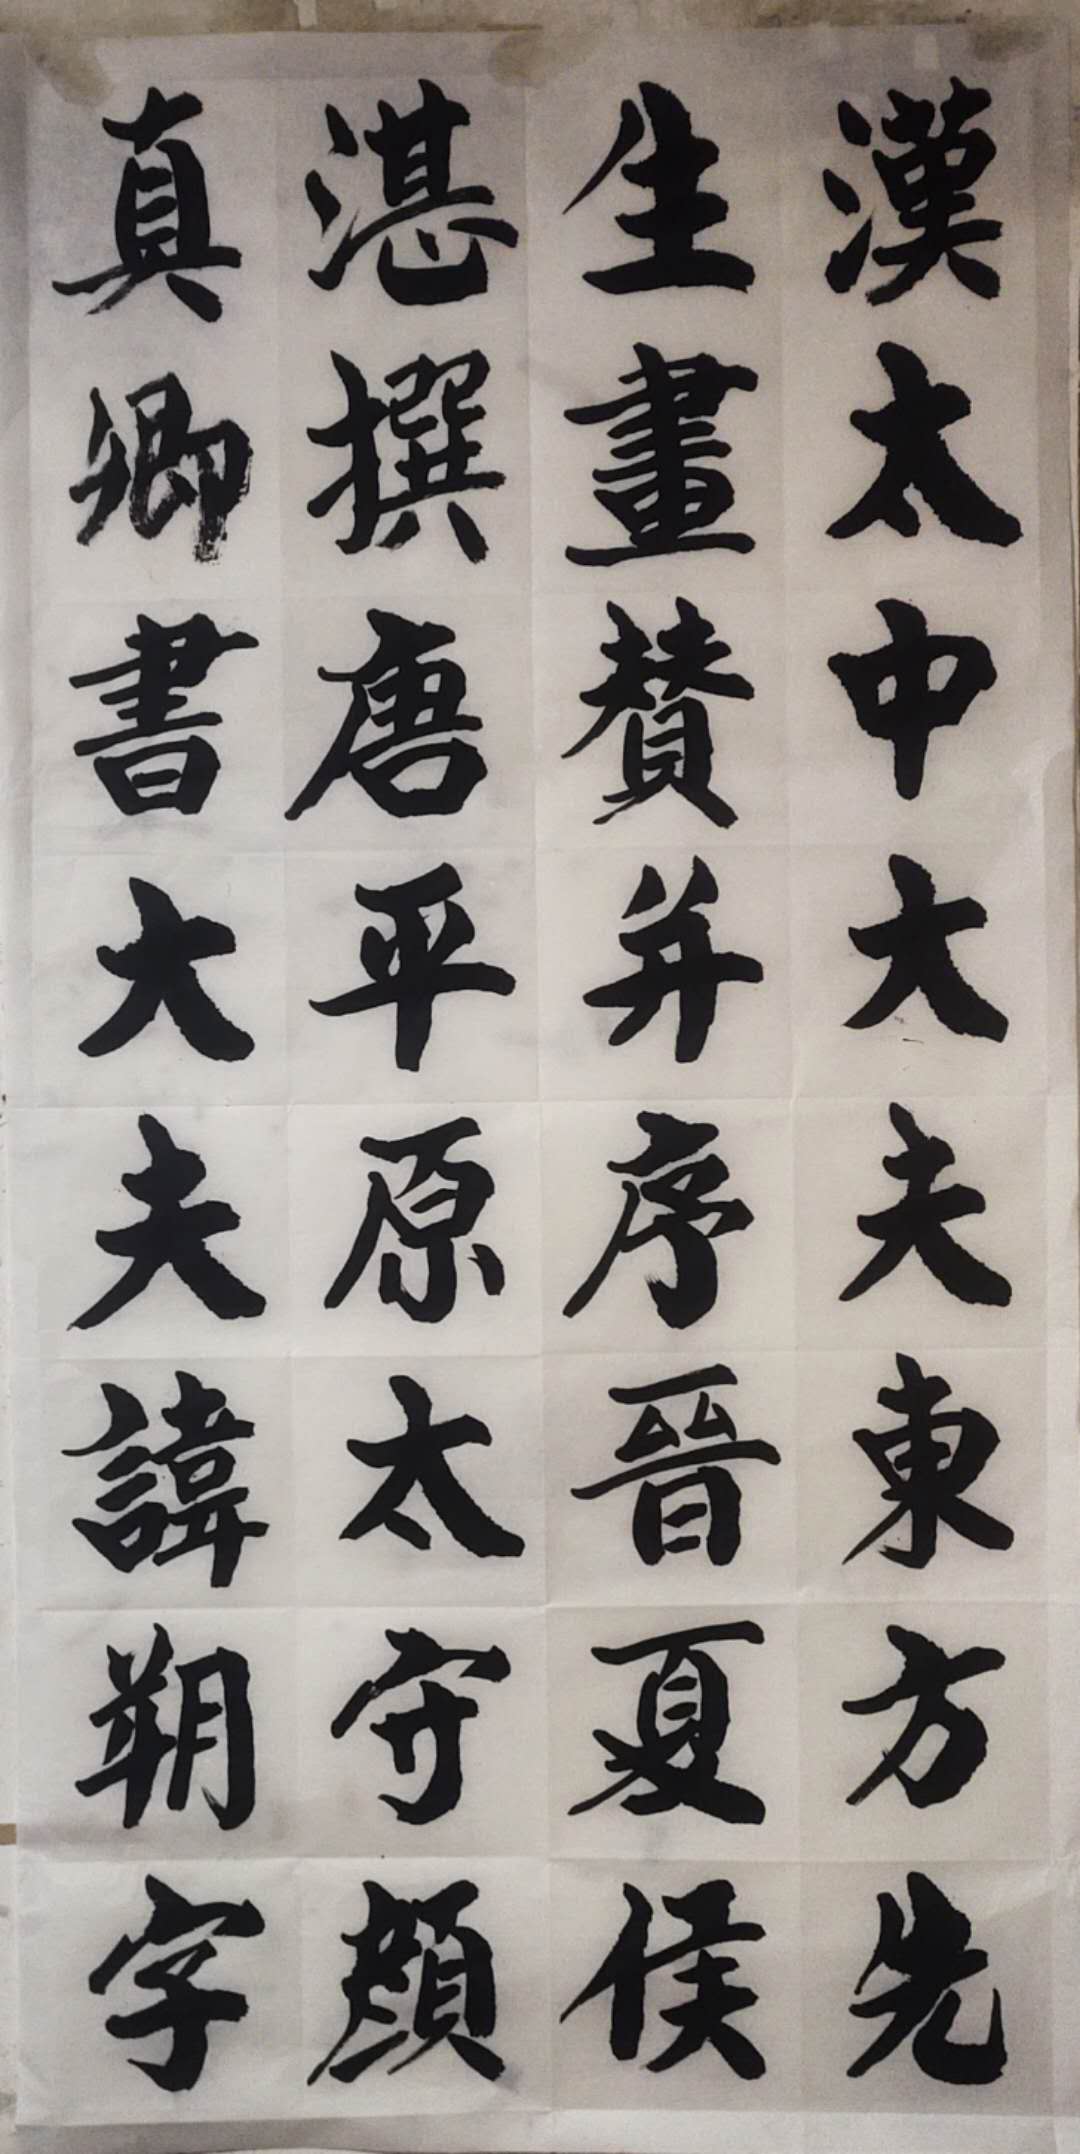 漢太中大夫東方先
生畫贊并序晉夏侯
湛撰唐平原太守顏
真卿書大夫諱朔字